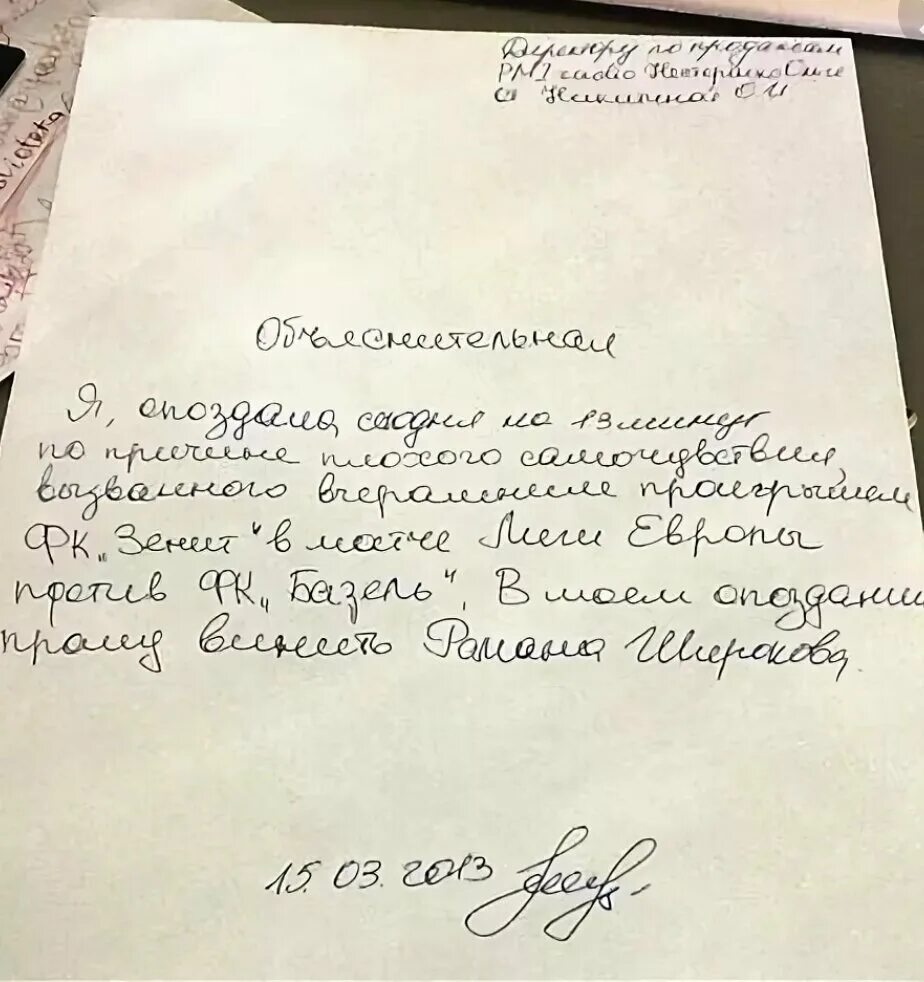 Директору по продажам
РМ1
от Никитиной О И
Объяснительная
Я, опоздала сегодня на 13 минут
по причине плохого самочувствия,
вызванного вчерашним проигрышем
ФК „Зенит“ в матче Лиги Европы
против ФК „Базель“. В моем опоздании
прошу винить Романа Широкова.
15.03.2013
vioteka